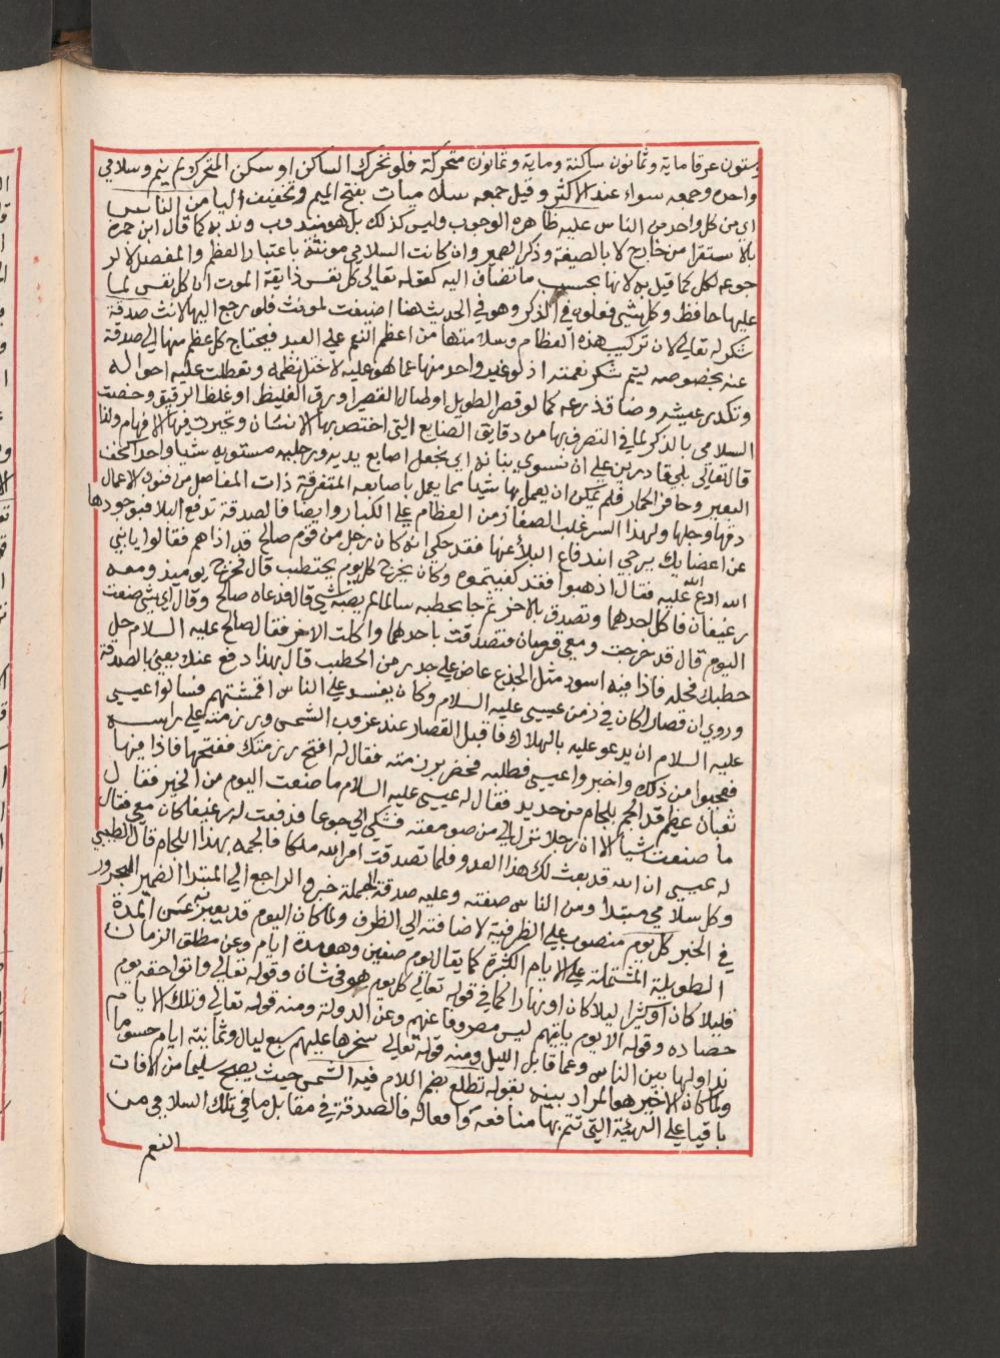 وستون عرقا ماية وثمانون ساكنة وماية وثمانون متحركة فلو تحرك الساكن او سكن المتحرك لم ينم وسلامي
واحده وجمعه سواء عند الاكثر وقيل جمعه سلاميات بفتح الميم وتخفيف اليا من الناس
اي من كل واحد من الناس عليه ظاهره الوجوب وليس كذلك بل هو مندوب وندبه كما قال ابن حمزة
بالاستقرا من خارج لا بالصيغة وذكر الضمير وان كانت السلامي مونثة باعتبار العظم والمفصل لا لر
جوعه لكل كما قيل به لانها بحسب ما تضاف اليه كقوله تعالى كل نفس ذايقة الموت ان كل نفس لما
عليها حافظ وكل شي فعلوه في الذكر وهو في الحديث هنا اضيفت لمونث فلو رجع اليها لانث صدقة
شكر له تعالى لان تركيب هذه العظام وسلامتها من اعظم النعم على العبد فيحتاج كل عظم منها الي صدقة
عنه بخصوصه ليتم شكر نعمته اذ لو غير واحد منها عما هو عليه لاختل نظمه وتعطلت عليه احواله
وتكدر عيشه وضاق ذرعه كما لو قصر الطويل او طال القصير او رق الغليظ او غلظ الرقيق وخصت
السلامى بالذكر لما في التصرف بها من دقايق الصنايع التي اختص بها الانسان وتحيرت فيها الافهام ولذا
قال تعالى بلي قادرين على ان نسوي بنانه اي نجعل اصابع يديه ورجليه مستويه شيا واحدا كخف
البعير وحافر الحمار فلم يمكن ان يعمل بها شيا مما يعمل باصابعه المتفرقة ذات المفاصل من فنون الاعمال
دقها وجلها ولهذا السر غلب الصغار من العظام على الكبار وايضا فالصدقة تدفع البلا فبوجودها
عن اعضايك يرجي اندفاع البلا عنها فقد حكي انه كان رجل من قوم صالح قد اذاهم فقالوا يا نبي
الله ادع الله عليه فقال اذهبوا فقد كفيتموه وكان يخرج كل يوم يحتطب قال فخرج يوميذ ومعه
رغيفان فاكل احدهما وتصدق بالاخر ثم جا بحطبه سالما لم يصبه شي قال فدعاه صالح وقال اي شي صنعت
اليوم قال قد خرجت ومعي قرصان فتصدقت باحدهما واكلت الاخر فقال صالح عليه السلام حل
حطبك فحله فاذا فيه اسود مثل الجذع عاض على جدر من الحطب قال بهذا دفع عنك يعني بالصدقة
وروي ان قصارا كان في زمن عيسى عليه السلام وكان يفسد على الناس اقمشتهم فسالوا عيسى
عليه السلام ان يدعو عليه بالهلاك فاقبل القصار عند غروب الشمس ورزمته على راسه
فعجبوا من ذلك واخبروا عيسى فطلبه فحضر برزمته فقال له افتح رزمتك ففتحها فاذا فيها
ثعبان عظيم قد الجم بلجام من حديد فقال له عيسى عليه السلام ما صنعت اليوم من الخير فقال
ما صنعت شيا الا ان رجلا نزل الي من صومعته فشكي الي جوعا فدفعت له رغيفا كان معي فقال
له عيسى ان الله قد بعث لك هذا العدو فلما تصدقت امر الله ملكا فالجمه بهذا اللجام قال الطيبي
وكل سلامي مبتدا ومن الناس صفته وعليه صدقة الجملة خبره والراجع الي المبتدا الضمير المجرور
في الخبر كل يوم منصوب على الظرفية لاضافته الي الظرف ولما كان اليوم قد يعبر به عن المدة
الطويلة المشتملة على الايام الكثيرة كما يقال يوم صفين وهو مدة ايام وعن مطلق الزمان
قليلا كان او كثيرا ليلا كان او نهارا كما في قوله تعالى كل يوم هو في شان وقوله تعالى واتوا حقه يوم
حصاده وقوله الا يوم ياتيهم ليس مصروفا عنهم وعن الدولة ومنه قوله تعالى وتلك الايام
نداولها بين الناس وعما قابل الليل ومنه قوله تعالى سخرها عليهم سبع ليال وثمانية ايام حسوما
ولما كان الاخير هو المراد بينه بقوله تطلع بضم اللام فيه الشمس حيث يصبح سليما من الافات
باقيا على الهيئة التي تتم بها منافعه وافعاله فالصدقة في مقابل ما في تلك السلامي من
النعم